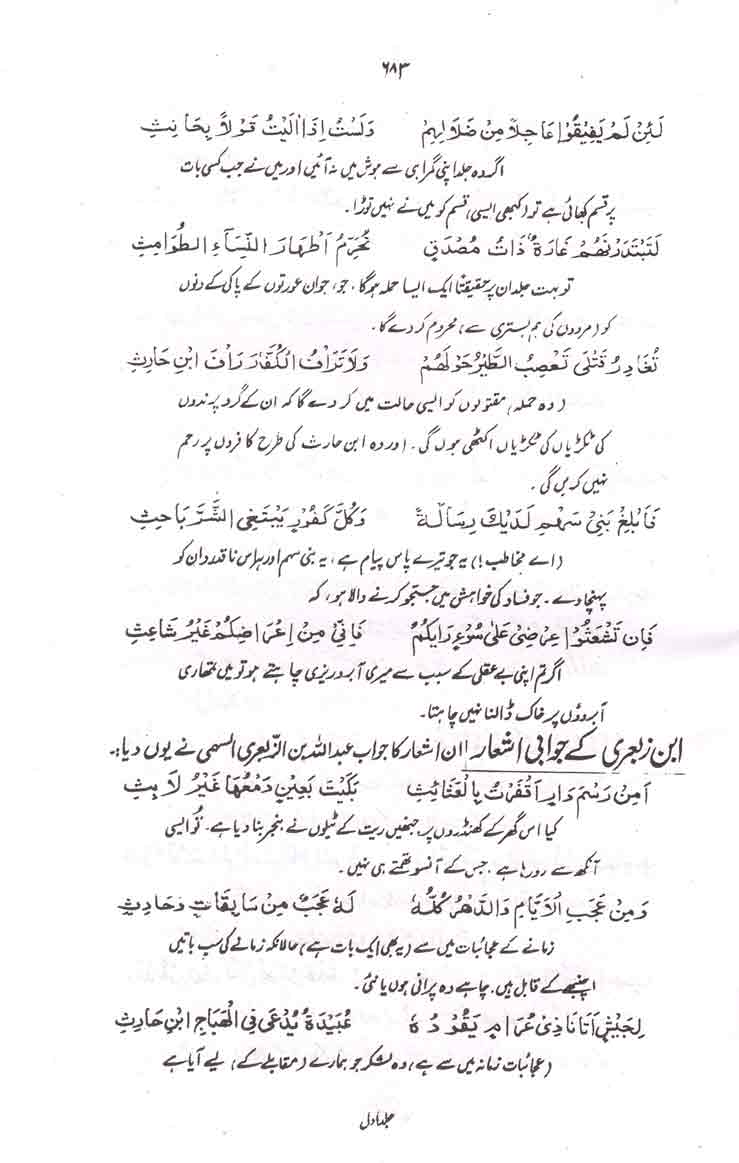 ۶۸۳
لَئِنْ لَمْ یَفِیْقُوْا عَاجِلاً مِنْ ضَلَالِهِمْ وَلَسْتُ اِذَا اٰلَیْتُ قَوْلاً بِحَانِثِ
اگر وہ جلد اپنی گمراہی سے ہوش میں نہ آئیں اور میں نے جب کسی بات
پر قسم کھائی ہے تو (کبھی ایسی) قسم کو میں نے نہیں توڑا۔
لَتَبْتَدِرَنَّهُمْ غَارَةٌ ذَاتُ مَصْدَقٍ تُحَرِّمُ اَطْهَارَ النِّسَآءِ الطَّوَامِثِ
تو بہت جلد ان پر حقیقتاً ایک ایسا حملہ ہوگا، جو، جوان عورتوں کے پاکی کے دنوں
کو (مردوں کی ہم بستری سے) محروم کر دے گا۔
تُغَادِرُ قَتْلٰی تَعْصِبُ الطَّیْرُ حَوْلَهُمْ وَلَا تَرْأَفُ الْکُفَّارَ رَأْفَ ابْنِ حَارِثِ
(وہ حملہ) مقتولوں کو ایسی حالت میں کر دے گا کہ ان کے گرد پرندوں
کی ٹکڑیاں کی ٹکڑیاں اکٹھی ہوں گی۔ اور وہ ابن حارث کی طرح کافروں پر رحم
نہیں کریں گی۔
فَاَبْلِغْ بَنِیْ سَهْمٍ لَدَیْكَ رِسَالَةً وَکُلَّ کَفُوْرٍ یَبْتَغِی الشَّرَّ بَاحِثِ
(اے مخاطب!) یہ جو تیرے پاس پیام ہے، یہ بنی سہم اور ہر اس ناقدردان کو
پہنچا دے۔ جو فساد کی خواہش میں جستجو کرنے والا ہو، کہ
فَاِنْ تَشْعَثُوْا عِرْضِیْ عَلٰی سُوْءِ رَایِکُمْ فَاِنِّیْ مِنْ اِعْرَاضِکُمْ غَیْرُ شَاعِثِ
اگر تم اپنی بے عقلی کے سبب سے میری آبروریزی چاہتے ہو تو میں تمھاری
آبروؤں پر خاک ڈالنا نہیں چاہتا۔
ابن زبعری کے جوابی اشعار | ان اشعار کا جواب عبداللہ بن الزّبعریٰ السہمی نے یوں دیا:۔
اَمِنْ رَسْمِ دَارٍ اَقْفَرَتْ بِالْعَثَاعِثِ بَکَیْتَ بِعَیْنٍ دَمْعُهَا غَیْرُ لَابِثِ
کیا اس گھر کے کھنڈروں پر، جنھیں ریت کے ٹیلوں نے بنجر بنا دیا ہے۔ تُو ایسی
آنکھ سے رو رہا ہے۔ جس کے آنسو تھمتے ہی نہیں۔
وَمِنْ عَجَبِ الْاَیَّامِ وَالدَّهْرُ کُلُّهٗ لَهٗ عَجَبٌ مِنْ سَابِقَاتٍ وَحَادِثِ
زمانے کے عجائبات میں سے (یہ بھی ایک بات ہے) حالانکہ زمانے کی سب باتیں
اچنبھے کے قابل ہیں۔ چاہے وہ پرانی ہوں یا نئی۔
لِجَیْشٍ اَتَانَا ذِیْ عُرَامٍ یَقُوْدُهٗ عُبَیْدَةُ یُدْعٰی فِی الْهَیَاجِ ابْنِ حَارِثِ
(عجائبات زمانہ میں سے ہے) وہ لشکر جو ہمارے (مقابلے کے) لیے آیا ہے
جلد اول